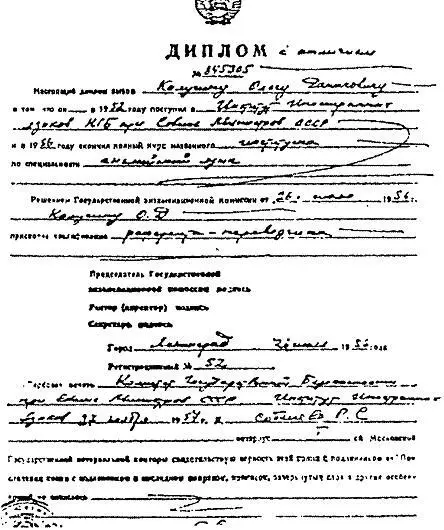 ДИПЛОМ с отличием
№ 845305
Настоящий диплом выдан Калугину Олегу Даниловичу
в том что он в 1952 поступил в Институт Иностранных
языков КГБ при Совете Министров СССР
и в 1956 году окончил полный курс названного института
по специальности английский язык
Решением Государственной экзаменационной комиссии от 26 1956 г.
Калугину О. Д
присвоена квалификация референта-переводчика
Председатель Государственной
экзаменационной комиссии подпись
Ректор (директор) подпись
Секретарь подпись
Город Ленинград 1956 года
Регистрационный № 52
Гербовая печать Комитет Государственной Безопасности
при Совете Министров СССР Институт Иностранных
языков 27 ноября 1957 г. я
нотариус ой Московской
Государственной нотариальной конторы свидетельствую верность этой копии с подлинником
копии с подлинником в последнем приписок, зачеркнутых слов и других особен-
не оказалось